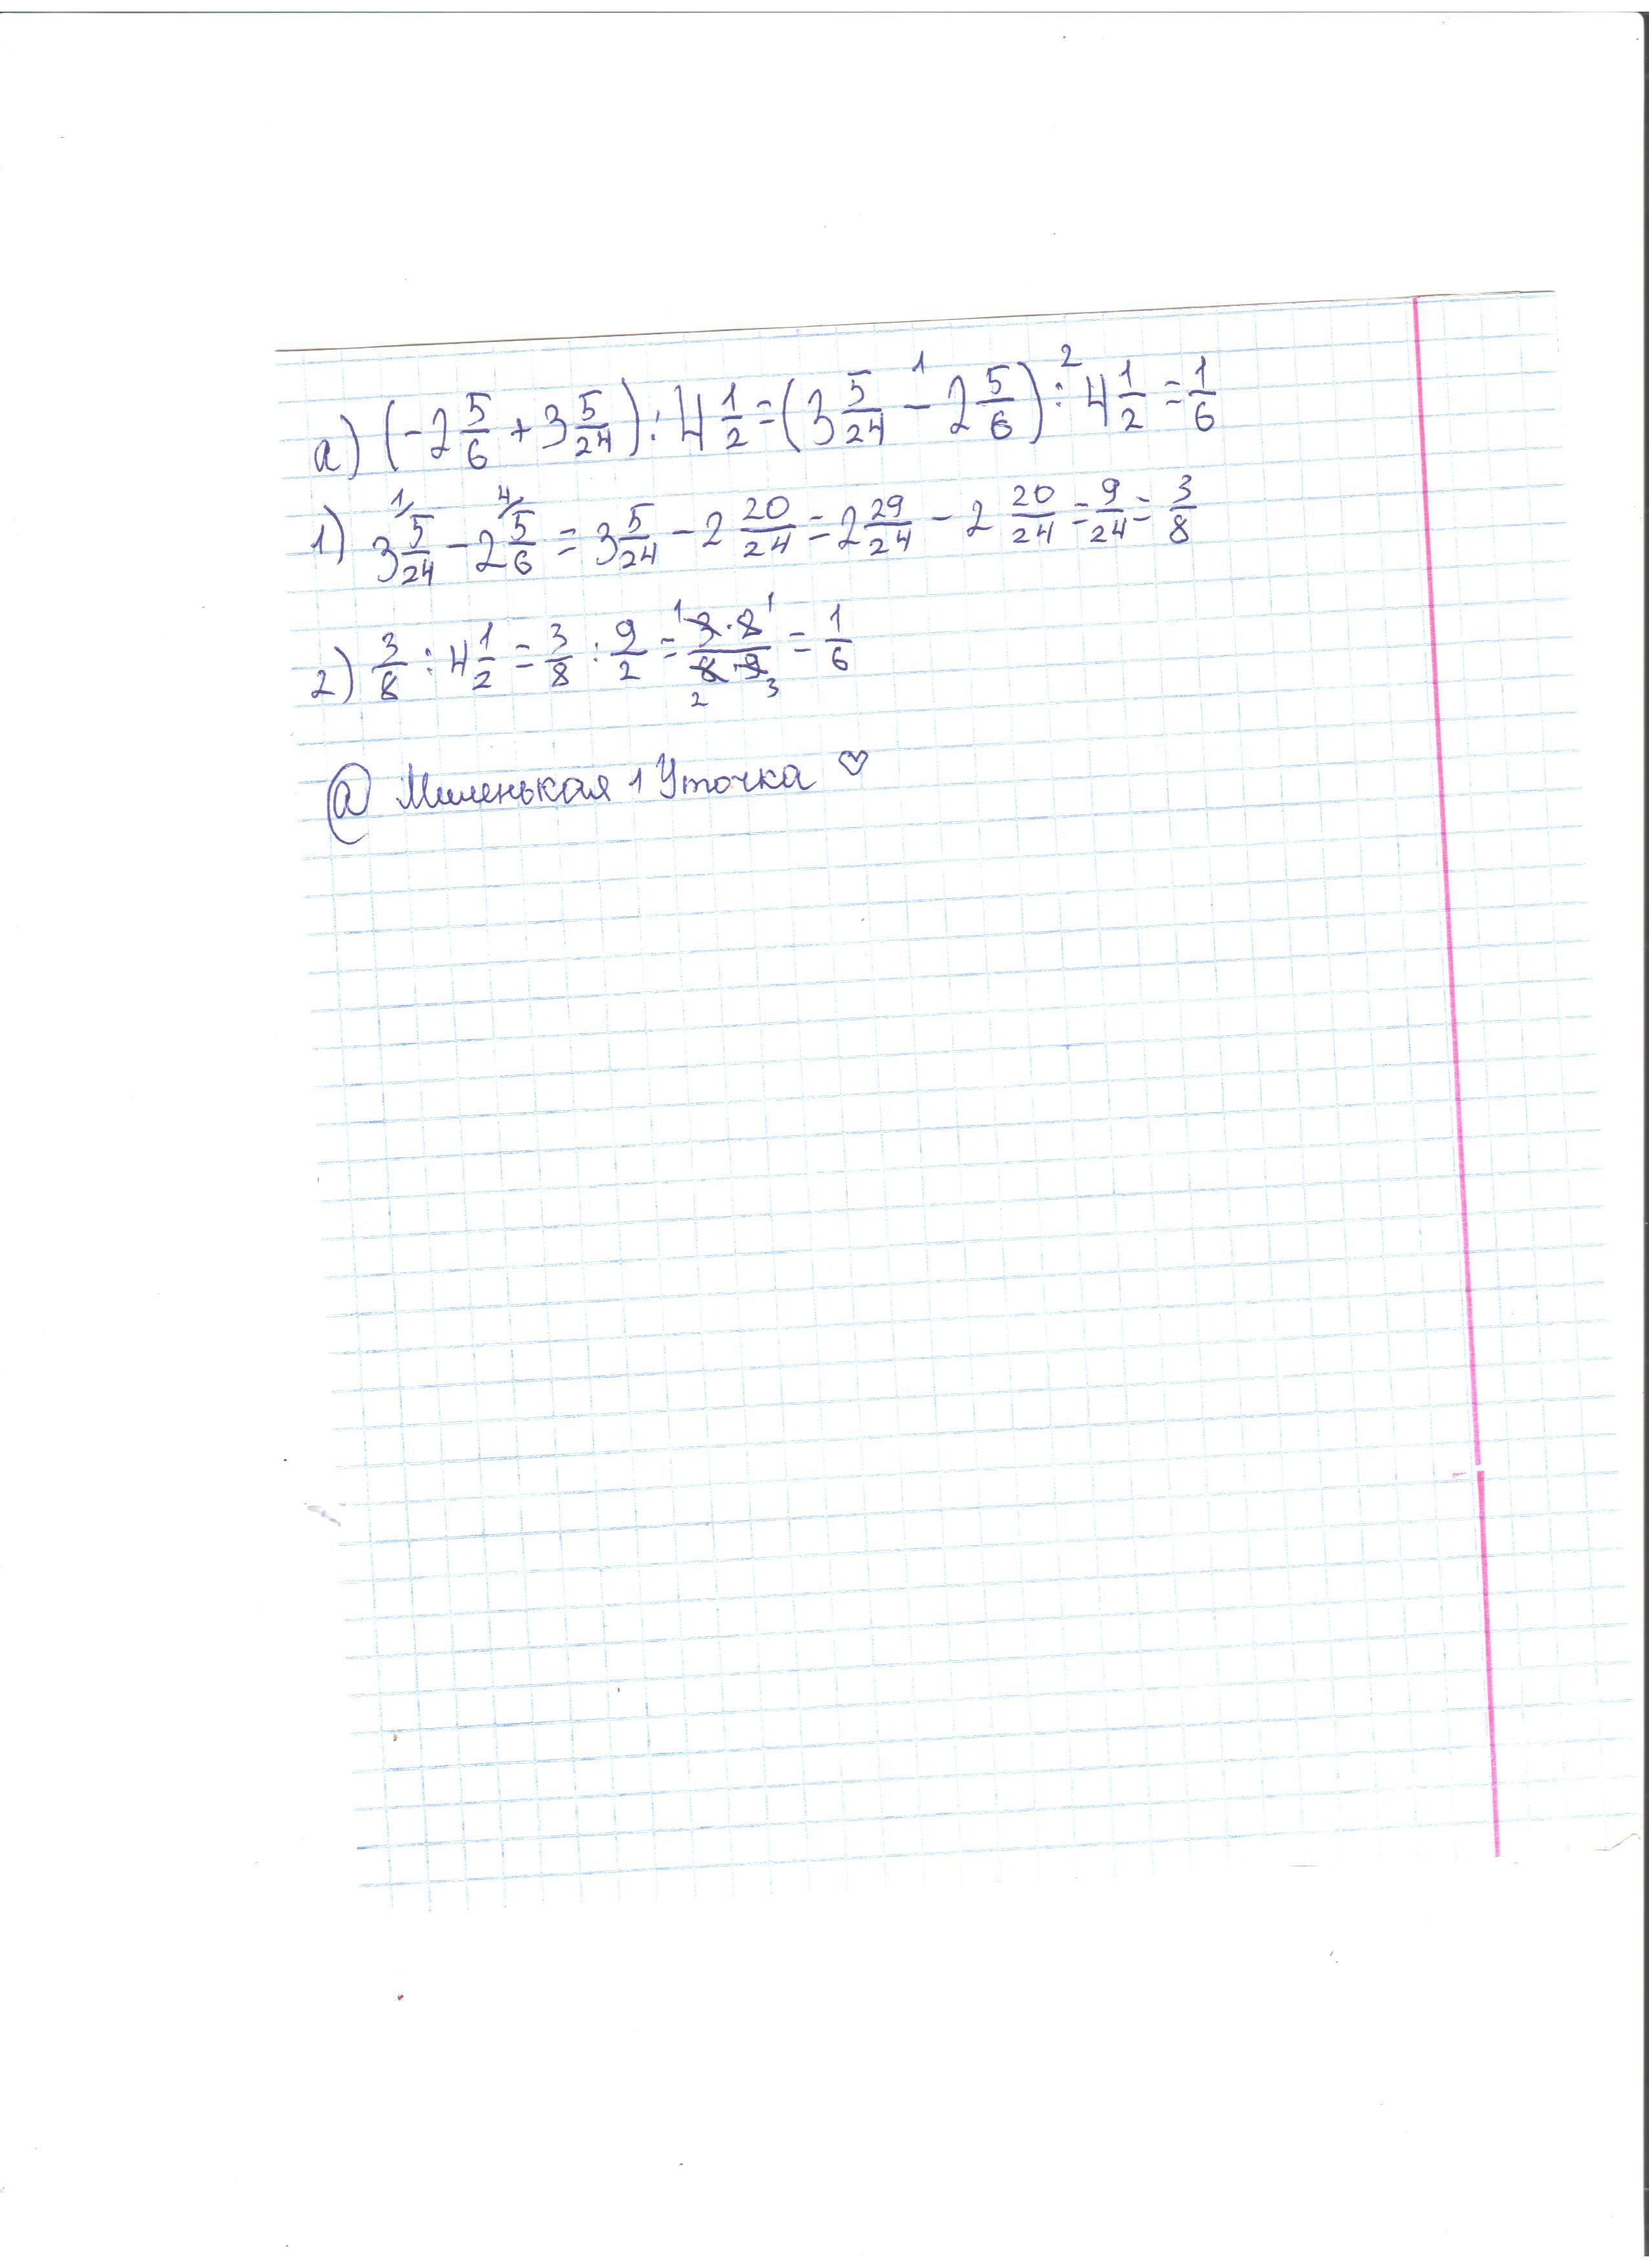 а) (-2 5/6 + 3 5/24) : 4 1/2 = (3 5/24 -¹ 2 5/6) :² 4 1/2 = 1/6
1) 3 5/24 ¹⁄ - 2 5/6 ⁴⁄ = 3 5/24 - 2 20/24 = 2 29/24 - 2 20/24 = 9/24 = 3/8
2) 3/8 : 4 1/2 = 3/8 : 9/2 = ¹3·2¹ / ₂8·9₃ = 1/6
@ Миленькая 1 Уточка ♡